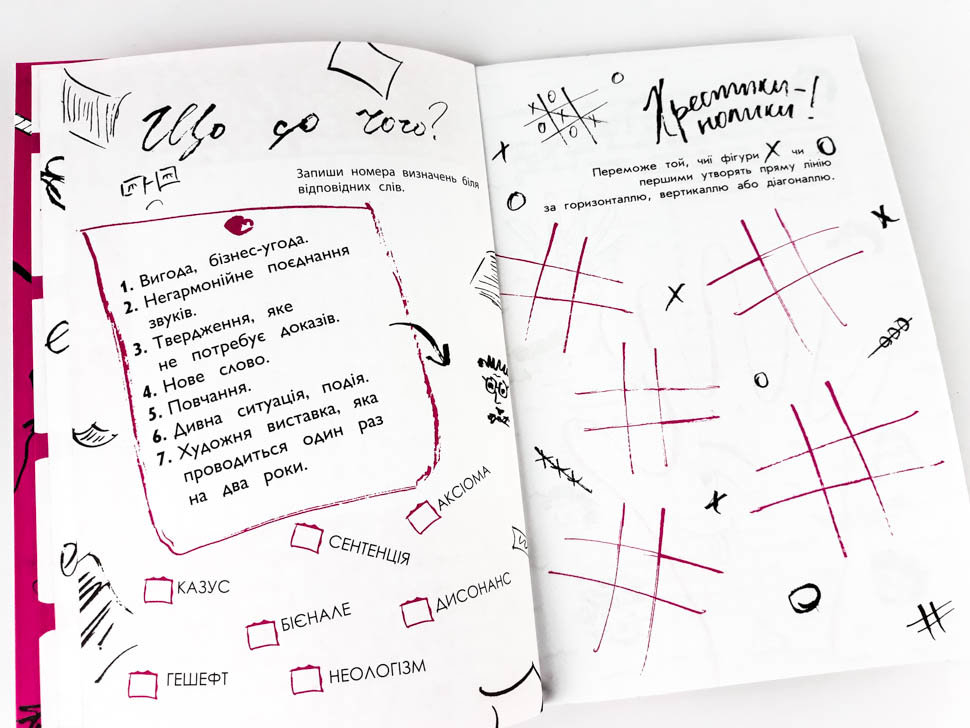 Що до чого?
Запиши номера визначень біля
відповідних слів.
1. Вигода, бізнес-угода.
2. Негармонійне поєднання
звуків.
3. Твердження, яке
не потребує доказів.
4. Нове слово.
5. Повчання.
6. Дивна ситуація, подія.
7. Художня виставка, яка
проводиться один раз
на два роки.
АКСІОМА
СЕНТЕНЦІЯ
КАЗУС
ДИСОНАНС
БІЄНАЛЕ
НЕОЛОГІЗМ
ГЕШЕФТ
Хрестики-
нолики!
Переможе той, чиї фігури X чи O
першими утворять пряму лінію
за горизонталлю, вертикаллю або діагоналлю.